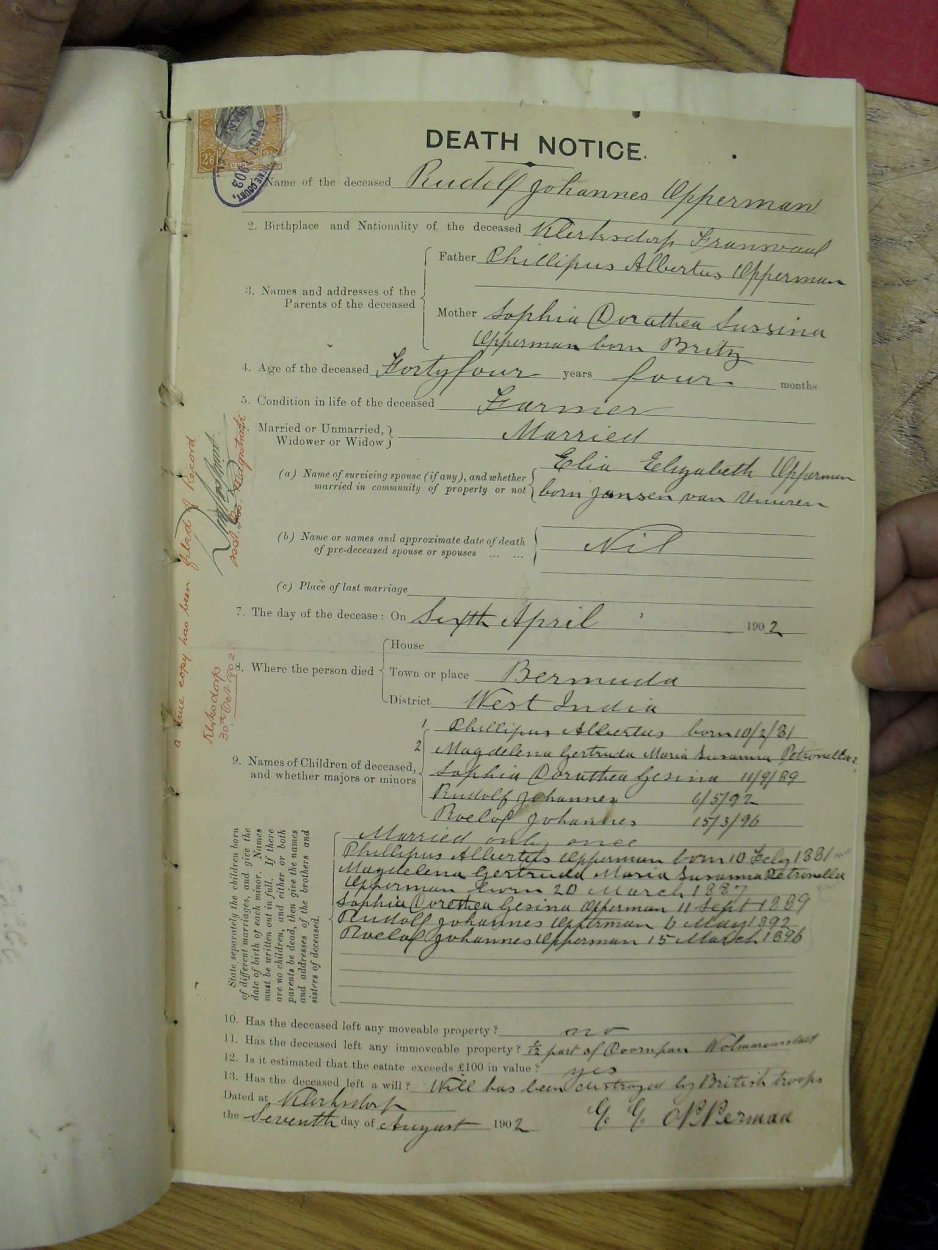 DEATH NOTICE.
Name of the deceased Rudolf Johannes Opperman
2. Birthplace and Nationality of the deceased Klerksdorp Transvaal
3. Names and addresses of the Parents of the deceased
Father Phillipus Albertus Opperman
Mother Sophia Dorathea Sussina
Opperman born Britz
4. Age of the deceased Fortyfour years four months
5. Condition in life of the deceased Farmer
Married or Unmarried,
Widower or Widow
Married
(a) Name of surviving spouse (if any), and whether
married in community of property or not
Elia Elizabeth Opperman
born Jansen van Vuuren
(b) Name or names and approximate date of death
of pre-deceased spouse or spouses ... ...
Nil
(c) Place of last marriage
7. The day of the decease: On Sixth April 1902
8. Where the person died
House
Town or place Bermuda
District West India
9. Names of Children of deceased,
and whether majors or minors
1 Phillipus Albertus born 10/2/81
2 Magdelena Gertruda Maria Susanna Petronella
Sophia Dorathea Gesina 11/9/89
Rudolf Johannes 6/5/92
Roelof Johannes 15/3/96
State separately the children born
of different marriages, and give the
date of birth of each minor. Names
must be written out in full. If there
are no children, and either or both
parents be dead, then give the names
and addresses of the brothers and
sisters of deceased.
Married only once
Phillipus Albertus Opperman born 10 Feby 1881
Magdelena Gertruda Maria Susanna Petronella
Opperman born 20 March 1887
Sophia Dorothea Gesina Opperman 11 Sept 1889
Rudolf Johannes Opperman 6 May 1892
Roelof Johannes Opperman 15 March 1896
10. Has the deceased left any moveable property? no
11. Has the deceased left any immoveable property? part of Doornpan Wolmaransstad
12. Is it estimated that the estate exceeds £100 in value? yes
13. Has the deceased left a will? Will has been destroyed by British troops
Dated at Klerksdorp
the Seventh day of August 1902
G. G. Opperman
a true copy has been filed of record
Klerksdorp
30th Oct 1902